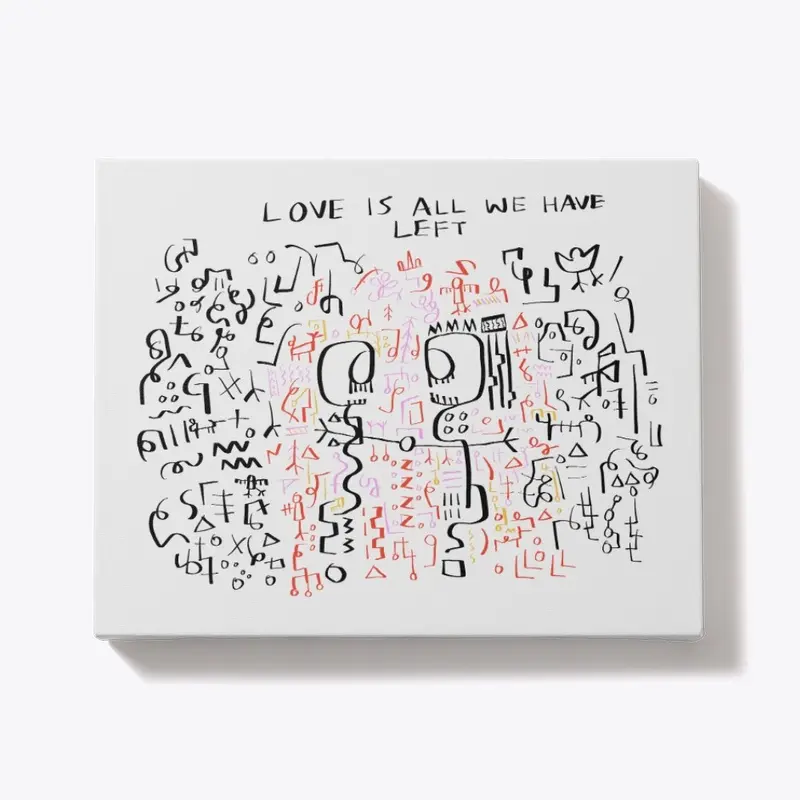 LOVE IS ALL WE HAVE
LEFT